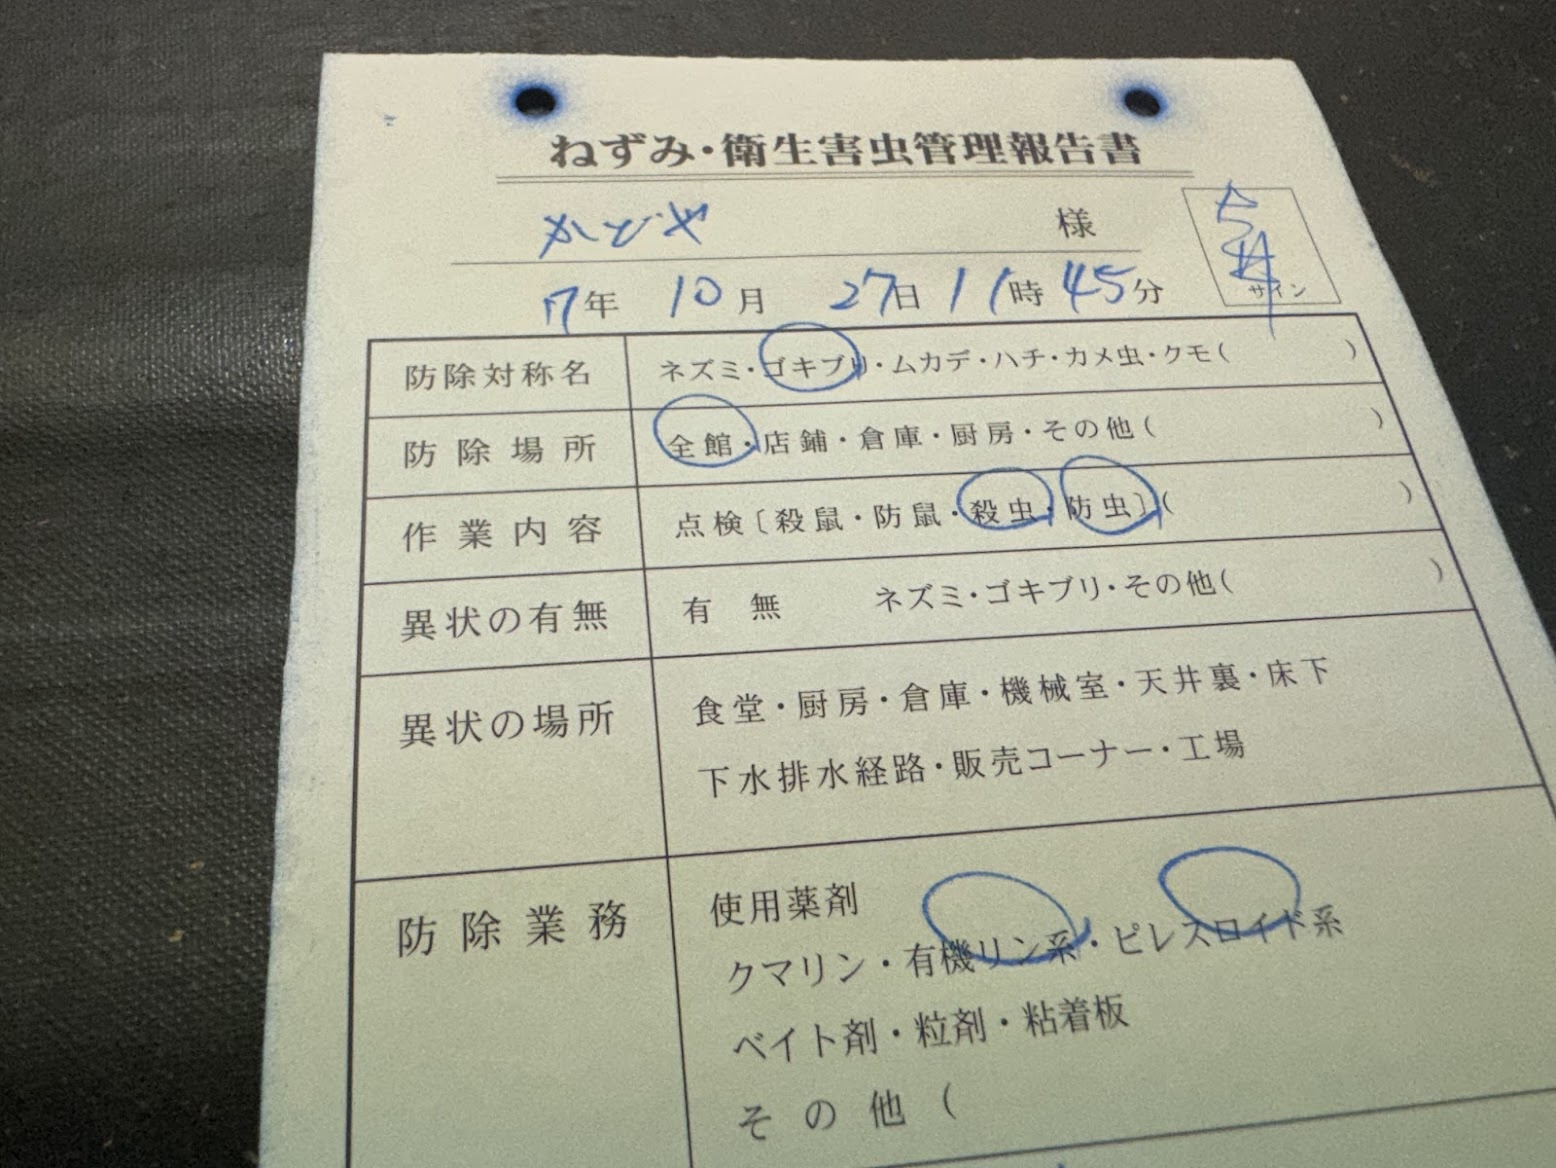 ねずみ・衛生害虫管理報告書
かどや 様
7年 10月 27日 11時 45分
サイン
防除対称名 ネズミ・ゴキブリ・ムカデ・ハチ・カメ虫・クモ( )
防除場所 全館・店舗・倉庫・厨房・その他( )
作業内容 点検〔殺鼠・防鼠・殺虫・防虫〕( )
異状の有無 有 無 ネズミ・ゴキブリ・その他( )
異状の場所 食堂・厨房・倉庫・機械室・天井裏・床下
下水排水経路・販売コーナー・工場
防除業務 使用薬剤
クマリン・有機リン系・ピレスロイド系
ベイト剤・粒剤・粘着板
その他(